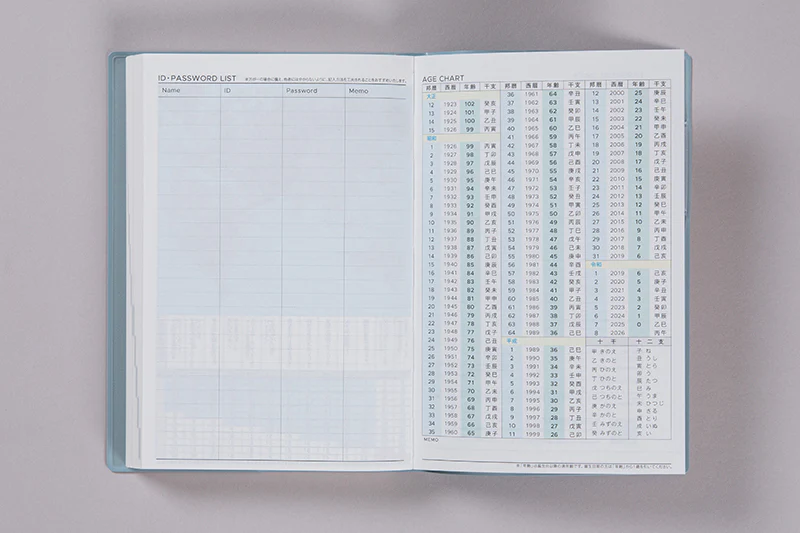 ID・PASSWORD LIST
※万が一の場合に備え、他者にはわからないように、記入方法を工夫されることをおすすめいたします。
Name ID Password Memo
AGE CHART
邦暦 西暦 年齢 干支
大正
12 1923 102 癸亥
13 1924 101 甲子
14 1925 100 乙丑
15 1926 99 丙寅
昭和
1 1926 99 丙寅
2 1927 98 丁卯
3 1928 97 戊辰
4 1929 96 己巳
5 1930 95 庚午
6 1931 94 辛未
7 1932 93 壬申
8 1933 92 癸酉
9 1934 91 甲戌
10 1935 90 乙亥
11 1936 89 丙子
12 1937 88 丁丑
13 1938 87 戊寅
14 1939 86 己卯
15 1940 85 庚辰
16 1941 84 辛巳
17 1942 83 壬午
18 1943 82 癸未
19 1944 81 甲申
20 1945 80 乙酉
21 1946 79 丙戌
22 1947 78 丁亥
23 1948 77 戊子
24 1949 76 己丑
25 1950 75 庚寅
26 1951 74 辛卯
27 1952 73 壬辰
28 1953 72 癸巳
29 1954 71 甲午
30 1955 70 乙未
31 1956 69 丙申
32 1957 68 丁酉
33 1958 67 戊戌
34 1959 66 己亥
35 1960 65 庚子
邦暦 西暦 年齢 干支
36 1961 64 辛丑
37 1962 63 壬寅
38 1963 62 癸卯
39 1964 61 甲辰
40 1965 60 乙巳
41 1966 59 丙午
42 1967 58 丁未
43 1968 57 戊申
44 1969 56 己酉
45 1970 55 庚戌
46 1971 54 辛亥
47 1972 53 壬子
48 1973 52 癸丑
49 1974 51 甲寅
50 1975 50 乙卯
51 1976 49 丙辰
52 1977 48 丁巳
53 1978 47 戊午
54 1979 46 己未
55 1980 45 庚申
56 1981 44 辛酉
57 1982 43 壬戌
58 1983 42 癸亥
59 1984 41 甲子
60 1985 40 乙丑
61 1986 39 丙寅
62 1987 38 丁卯
63 1988 37 戊辰
64 1989 36 己巳
平成
1 1989 36 己巳
2 1990 35 庚午
3 1991 34 辛未
4 1992 33 壬申
5 1993 32 癸酉
6 1994 31 甲戌
7 1995 30 乙亥
8 1996 29 丙子
9 1997 28 丁丑
10 1998 27 戊寅
11 1999 26 己卯
邦暦 西暦 年齢 干支
12 2000 25 庚辰
13 2001 24 辛巳
14 2002 23 壬午
15 2003 22 癸未
16 2004 21 甲申
17 2005 20 乙酉
18 2006 19 丙戌
19 2007 18 丁亥
20 2008 17 戊子
21 2009 16 己丑
22 2010 15 庚寅
23 2011 14 辛卯
24 2012 13 壬辰
25 2013 12 癸巳
26 2014 11 甲午
27 2015 10 乙未
28 2016 9 丙申
29 2017 8 丁酉
30 2018 7 戊戌
31 2019 6 己亥
令和
1 2019 6 己亥
2 2020 5 庚子
3 2021 4 辛丑
4 2022 3 壬寅
5 2023 2 癸卯
6 2024 1 甲辰
7 2025 0 乙巳
8 2026 丙午
十干
甲 きのえ
乙 きのと
丙 ひのえ
丁 ひのと
戊 つちのえ
己 つちのと
庚 かのえ
辛 かのと
壬 みずのえ
癸 みずのと
十二支
子 ね
丑 うし
寅 とら
卯 う
辰 たつ
巳 み
午 うま
未 ひつじ
申 さる
酉 とり
戌 いぬ
亥 い
MEMO
※「年齢」は誕生日以降の満年齢です。誕生日前の方は「年齢」から1歳を引いてください。